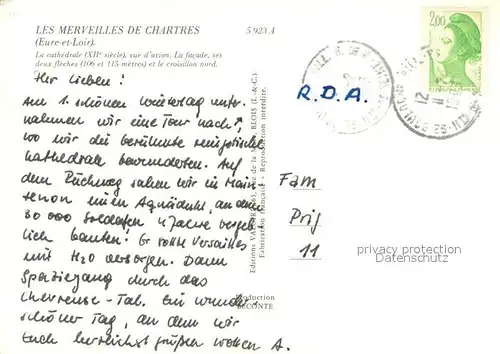 LES MERVEILLES DE CHARTRES 5 923 A
(Eure-et-Loir).
La cathédrale (XIIe siècle), vue d'avion. La façade, ses
deux flèches (106 et 115 mètres) et le croisillon nord.
Ihr Lieben!
Am 1. schönen Wintertag unter-
nahmen wir eine Tour nach ↑
wo wir die berühmte
Kathedrale bewunderten. Auf
dem Rückweg sahen wir in Main-
tenon einen Aquädukt, an dem
30 000 Soldaten 4 Jahre vergeb-
lich bauten! Er sollte Versailles
mit H2O versorgen. Dann
Spaziergang durch das
Chevreuse-Tal. Ein wunder-
schöner Tag, an dem wir
Euch herzlichst grüßen wollen A.
BLOIS (L.-&-C.)
Fabrication française - Reproduction interdite.
Production
LECONTE
R.D.A.
2,00
Fam
Prig
11
privacy protection
Datenschutz